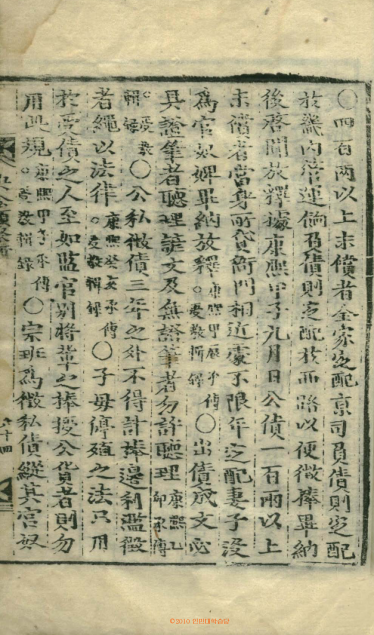 〇四百兩以上未償者全家定配京司負債則定配
於畿內營運倘負債則定配於西路以便徵捧畢納
後啓聞放釋據康熙甲子九月日公債一百兩以上
未償者當身所貸衙門相近處不限年定配妻子沒
爲官奴婢畢納放釋康熙甲辰承傳。受敎輯錄〇出債成文必
具證筆者聽理諺文及無證筆者勿許聽理康熙乙卯承傳
。受敎輯錄〇公私徵債三年之外不得計捧邊利濫徵
者繩以法律康熙癸亥承傳。受敎輯錄〇子母停殖之法只用
於受債之人至如監官別將輩之捧授公貨者則勿
用此規康熙甲子承傳。受敎輯錄〇宗班爲徵私債縱其宮奴
六十四